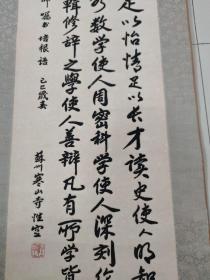 足以怡情足以长才读史使人明智
数学使人周密科学使人深刻伦
辑修辞之学使人善辩凡有所学皆
嘱书培根语 己巳岁春
苏州寒山寺性空